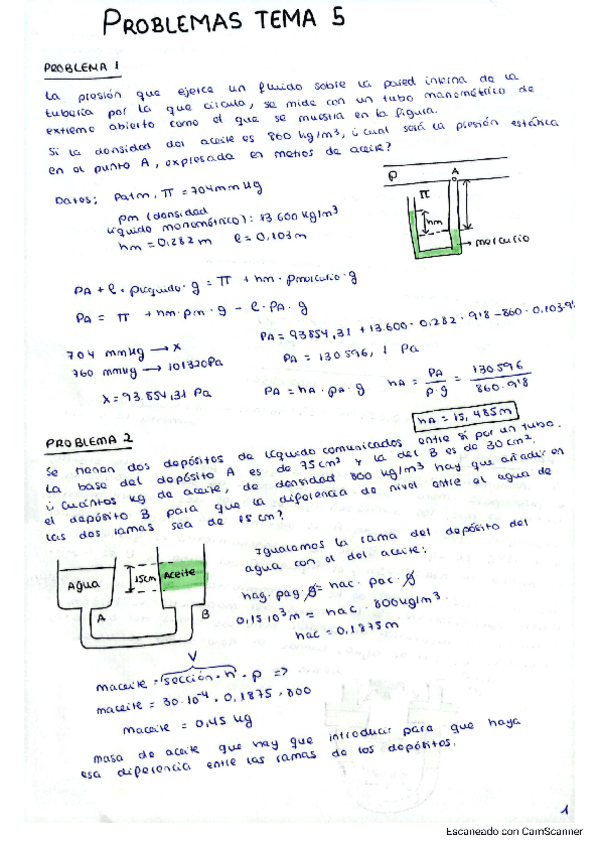 PROBLEMAS TEMA 5
PROBLEMA 1
La presión que ejerce un fluido sobre la pared interna de la
tubería por la que circula, se mide con un tubo manométrico de
extremo abierto como el que se muestra en la figura.
Si la densidad del aceite es 860 kg/m³, ¿cual será la presión estática
en el punto A, expresada en metros de aceite?
Datos; Patm, π = 704 mm Hg
ρm (densidad
líquido manométrico): 13.600 kg/m³
hm = 0,282 m l = 0,103 m
P A
π
hm
mercurio
PA + l · ρlíquido · g = π + hm · ρmercurio · g
PA = π + hm · ρm · g - l · ρA · g
PA = 93854,31 + 13.600 · 0.282 · 9'8 - 860 · 0.103 · 9'8
704 mmHg → x
PA = 130596, 1 Pa
760 mmHg → 101320 Pa
x = 93.854,31 Pa
PA = hA · ρA · g hA = PA / ρ · g = 130596 / 860 · 9'8
hA = 15,485 m
PROBLEMA 2
Se tienen dos depósitos de líquido comunicados entre sí por un tubo.
La base del depósito A es de 75 cm² y la del B es de 30 cm².
¿Cuántos kg de aceite, de densidad 800 kg/m³ hay que añadir en
el depósito B para que la diferencia de nivel entre el agua de
las dos ramas sea de 15 cm?
Agua 15cm Aceite
A B
Igualamos la rama del depósito del
agua con el del aceite:
hag · ρag · g = hac · ρac · g
0,15 10³ m = hac · 800 kg/m³
hac = 0,1875 m
V
maceite = sección · h · ρ =>
maceite = 30 · 10⁻⁴ · 0,1875 · 800
maceite = 0,45 kg
masa de aceite que hay que introducir para que haya
esa diferencia entre las ramas de los depósitos.
1
Escaneado con CamScanner